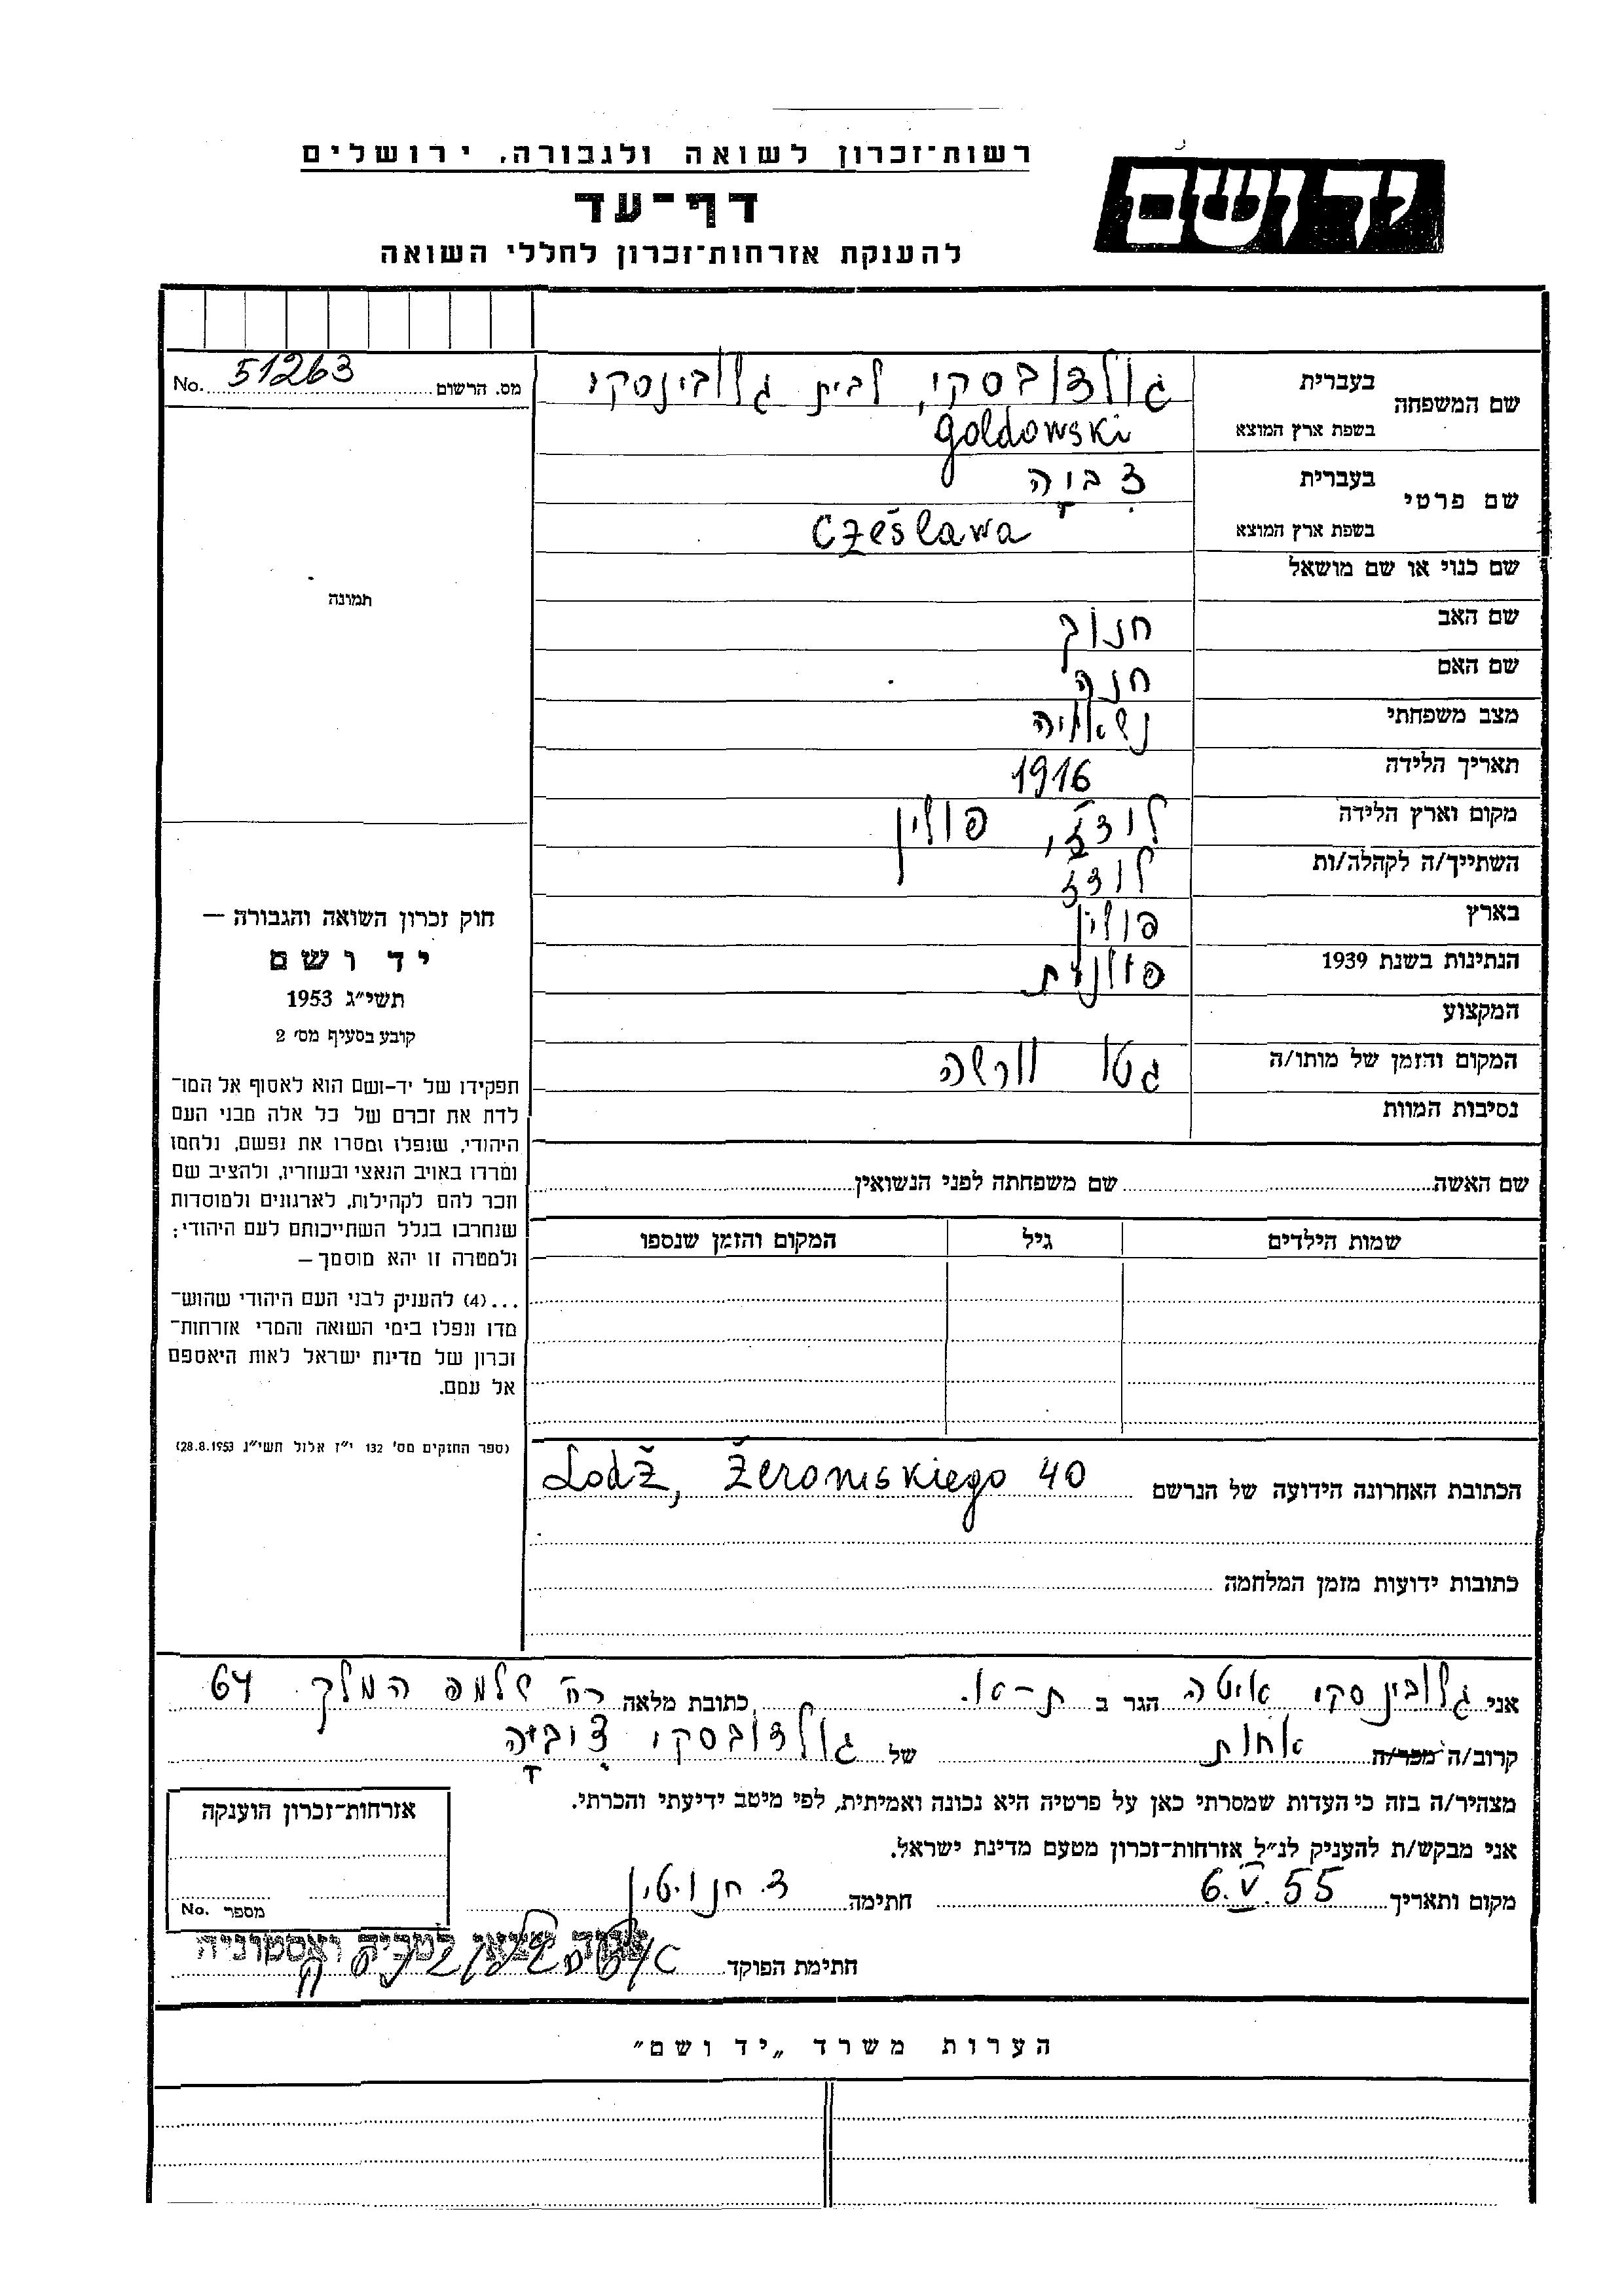 רשות־זכרון לשואה ולגבורה, ירושלים
יד ושם
דף־עד
להענקת אזרחות־זכרון לחללי השואה
מס. הרשום 51263 No.
שם המשפחה
בעברית
גולדובסקי, לבית גלובינסקי
בשפת ארץ המוצא
Goldowski
שם פרטי
בעברית
צביה
בשפת ארץ המוצא
Czeslawa
שם כנוי או שם מושאל
שם האב חנוך
שם האם חנה
מצב משפחתי נשואה
תאריך הלידה 1916
מקום וארץ הלידה לודז', פולין
השתייך/ה לקהלה/ות לודז
בארץ פולין
הנתינות בשנת 1939 פולנית
המקצוע
המקום והזמן של מותו/ה גטו ורשה
נסיבות המוות
תמונה
חוק זכרון השואה והגבורה —
יד ושם
תשי״ג 1953
קובע בסעיף מס׳ 2
תפקידו של יד-ושם הוא לאסוף אל המו־
לדת את זכרם של כל אלה מבני העם
היהודי, שנפלו ומסרו את נפשם, נלחמו
ומרדו באויב הנאצי ובעוזריו, ולהציב שם
וזכר להם לקהילות, לארגונים ולמוסדות
שנחרבו בגלל השתייכותם לעם היהודי;
ולמטרה זו יהא מוסמך—
...(4) להעניק לבני העם היהודי שהוש־
מדו ונפלו בימי השואה והמרי אזרחות־
זכרון של מדינת ישראל לאות היאספם
אל עמם.
(ספר החוקים מס׳ 132 י״ז אלול תשי״ג 28.8.1953)
שם האשה שם משפחתה לפני הנשואין
שמות הילדים גיל המקום והזמן שנספו
הכתובת האחרונה הידועה של הנרשם Lodž, Žeromskiego 40
כתובות ידועות מזמן המלחמה
אני גלובינסקי איטה הגר ב ת-א. כתובת מלאה רח' שלמה המלך 64
קרוב/ה מכר/ה אחות של גולדובסקי צביה
מצהיר/ה בזה כי העדות שמסרתי כאן על פרטיה היא נכונה ואמיתית, לפי מיטב ידיעתי והכרתי.
אני מבקש/ת להעניק לנ״ל אזרחות־זכרון מטעם מדינת ישראל.
מקום ותאריך 6.V.55 חתימה
אזרחות־זכרון הוענקה
מספר No.
חתימת הפוקד
לטביה ואסטוניה
הערות משרד „יד ושם״